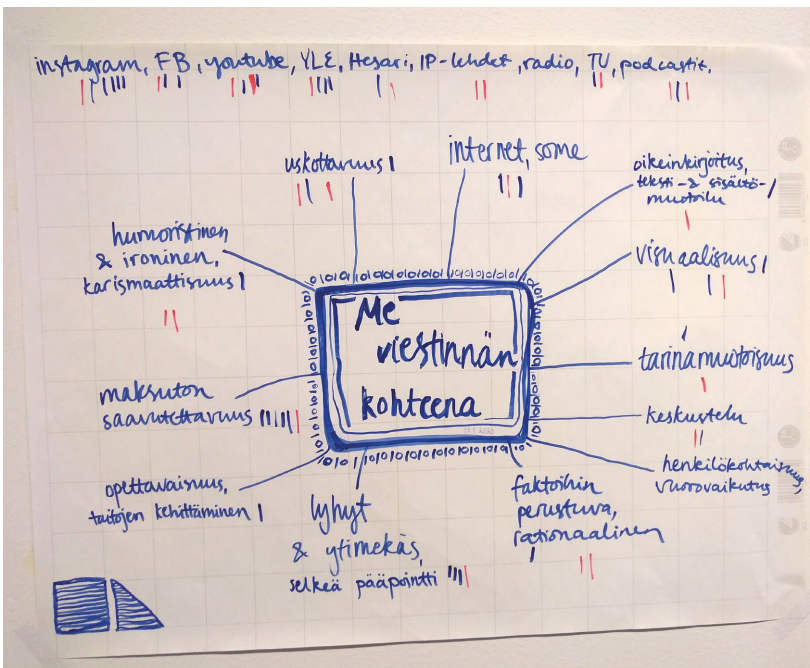 instagram, FB, youtube, YLE, Hesari, IP-lehdet, radio, TV, podcastit,
uskottavuus
internet, some
oikeinkirjoitus,
teksti- & sisältö-
muotoilu
humoristinen
& ironinen,
karismaattisuus
visuaalisuus
Me
viestinnän
kohteena
tarinamuotoisuus
maksuton
saavutettavuus
keskustelu
henkilökohtaisuus,
vuorovaikutus
opettavaisuus,
taitojen kehittäminen
lyhyt
& ytimekäs,
selkeä pääpointti
faktoihin
perustuva,
rationaalinen